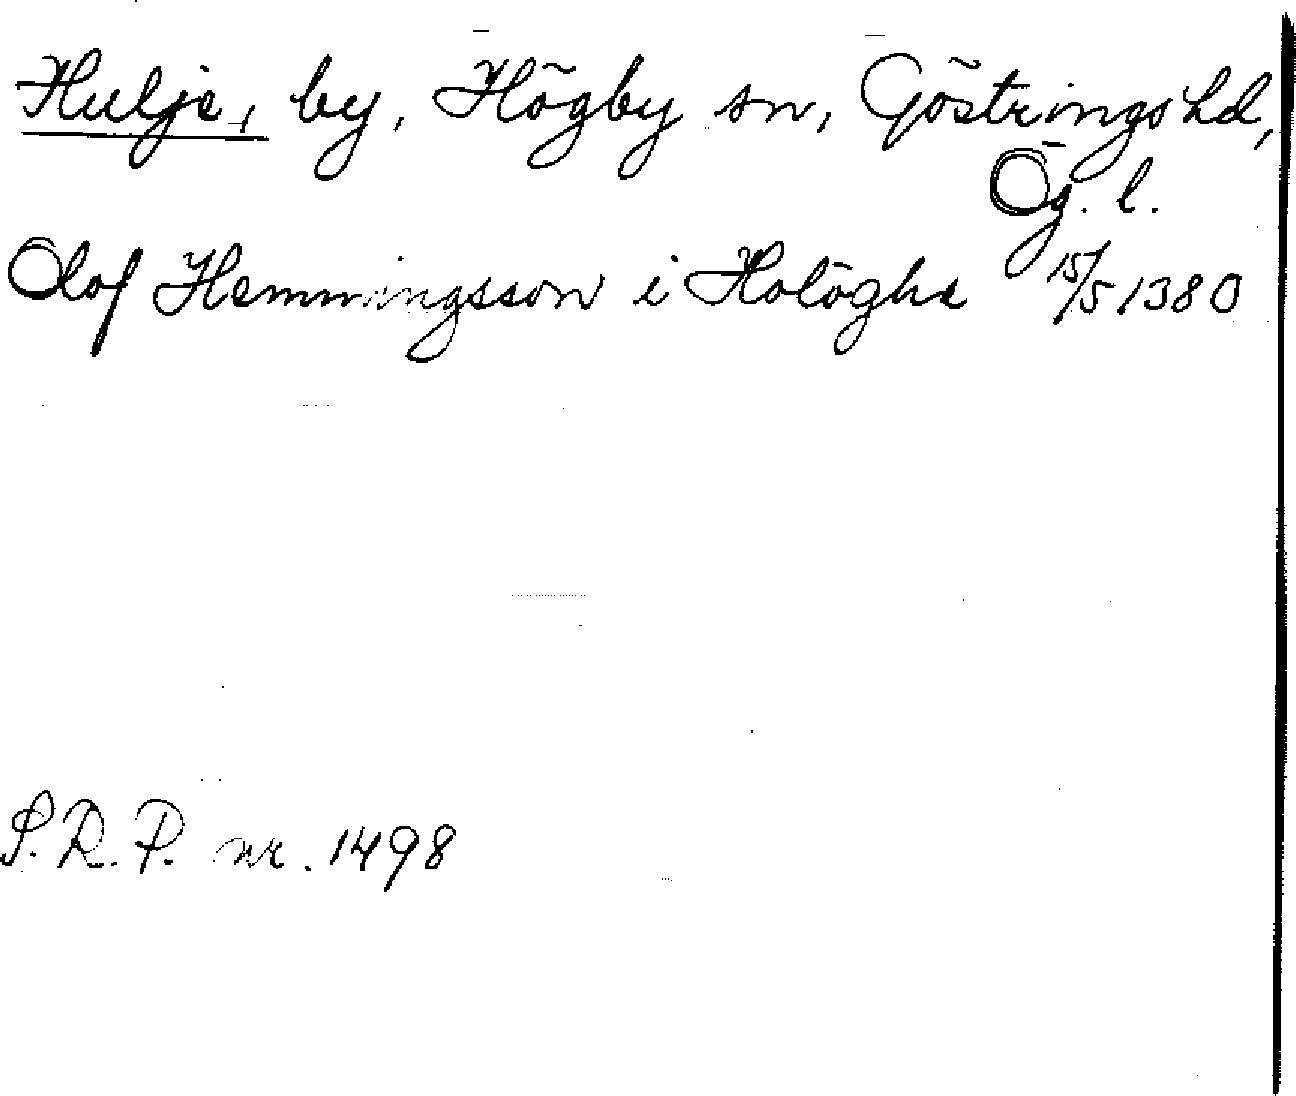 Hulje, by, Högby sn, Göstrings hd,
Ög. l.
Olof Hemmingsson i Holöghe 15/5 1380
S.R.P. nr. 1498